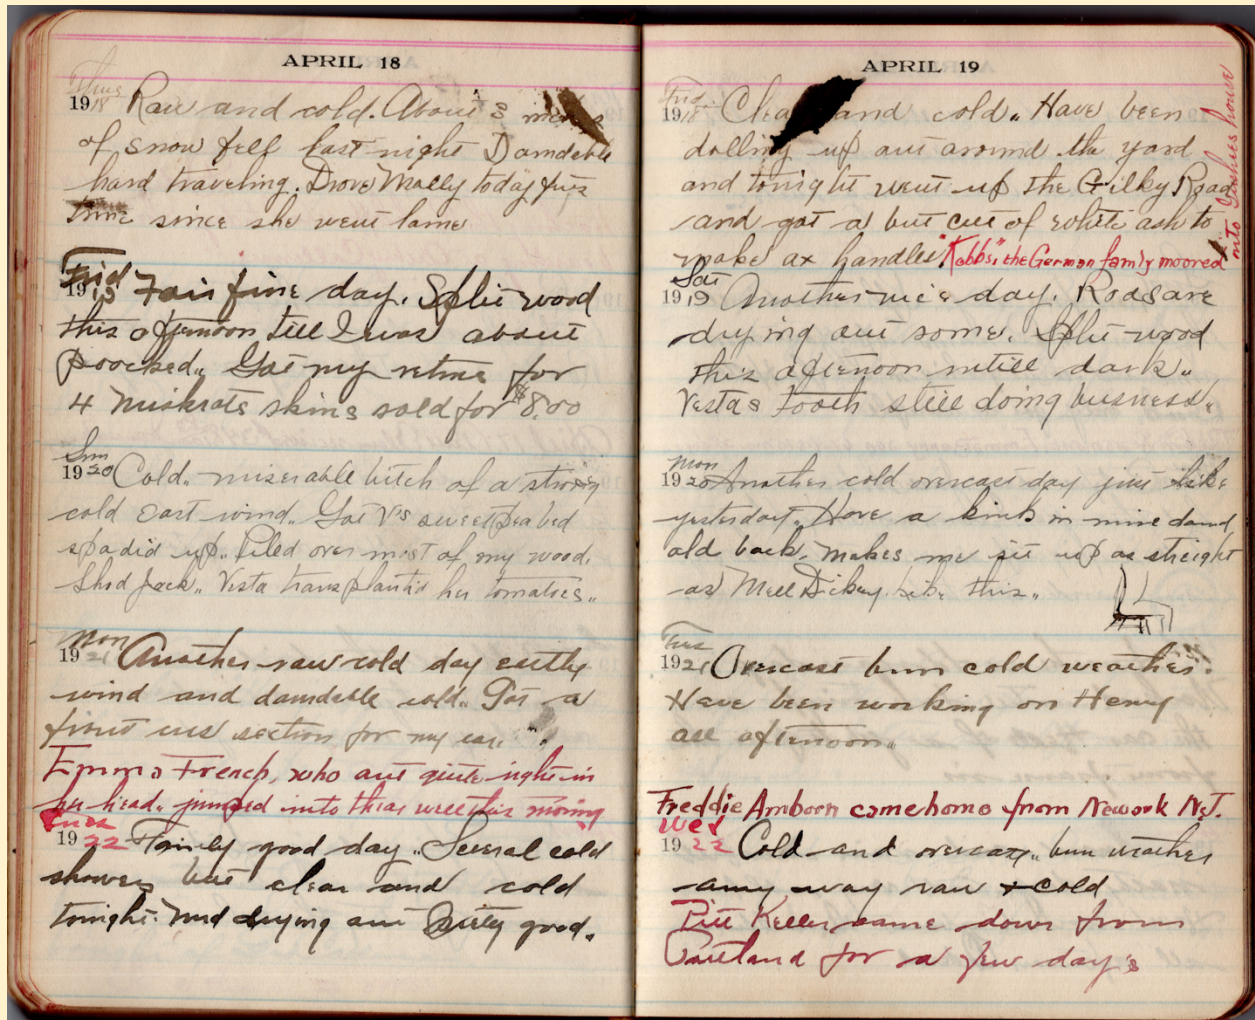 APRIL 18
Thus
1918 Raw and cold. About 3 inches
of snow fell last night Damdable
hard traveling. Drove Molly today furs
time since she went lame
Frid
1919 Fair fine day. Split wood
this afternoon till I was about
poocked.. Got my returns for
4 Muskrats skins sold for $8.00
Sun
1920 Cold.. miserable bitch of a strong
cold east wind.. Got V's sweet pea bed
spadid up.. Piled over most of my wood.
Shod Jack.. Vesta transplantid her tomatoes..
Mon
1921 Another raw cold day eastly
wind and damdable cold.. Got a
front cus section for my car.
Emma French, who ant quite right in
her head.. jumped into thear well this morning
Tues
1922 Fairly good day.. Several cold
showers but clear and cold
tonight. Mud drying out pritty good.
APRIL 19
Frid
1918 Clear and cold.. Have been
dolling up out around the yard
and tonight went up the Gilky Road
and got a but cut of white ash to
make ax handles. "Kobbs" the German family moored
into Lashies house
Sat
1919 Another nice day. Rods are
drying out some. Split wood
this afternoon intill dark..
Vestas tooth still doing business..
Mon
1920 Another cold overcast day just like
yesterday.. Have a kink in mine damd
old back. makes me sit up as streight
as Mell Dickey. Like this..
Tues
1921 Overcast bum cold weather.
Have been working on Henry
all afternoon..
Freddie Amborn came home from Nework N.J.
Wed
1922 Cold and overcast.. bum weather
anny way raw + cold
Pitt Keller came down from
Portland for a few day's